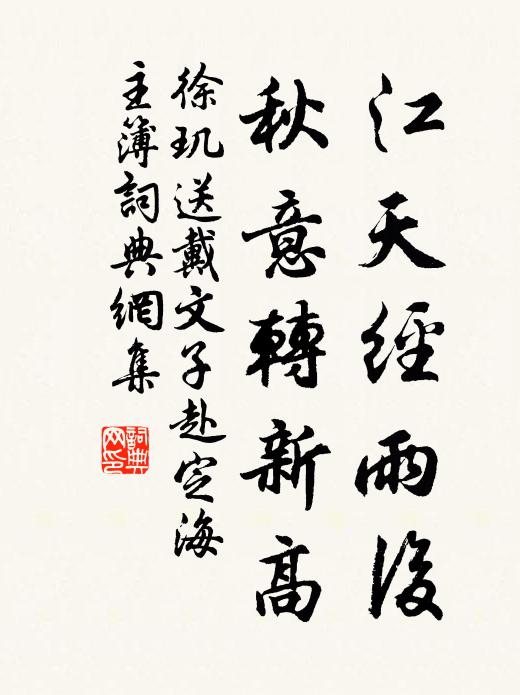 江天經雨後
秋意轉新高
徐玑送戴文子赴定海
主簿詞典網集
詞典
网印